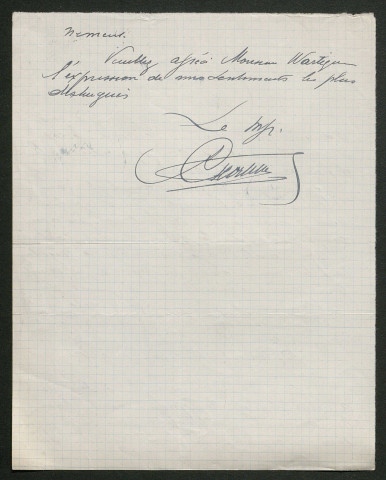 nement.
Veuillez agréer Monsieur
l'expression de mes sentiments les plus
distingués
Le